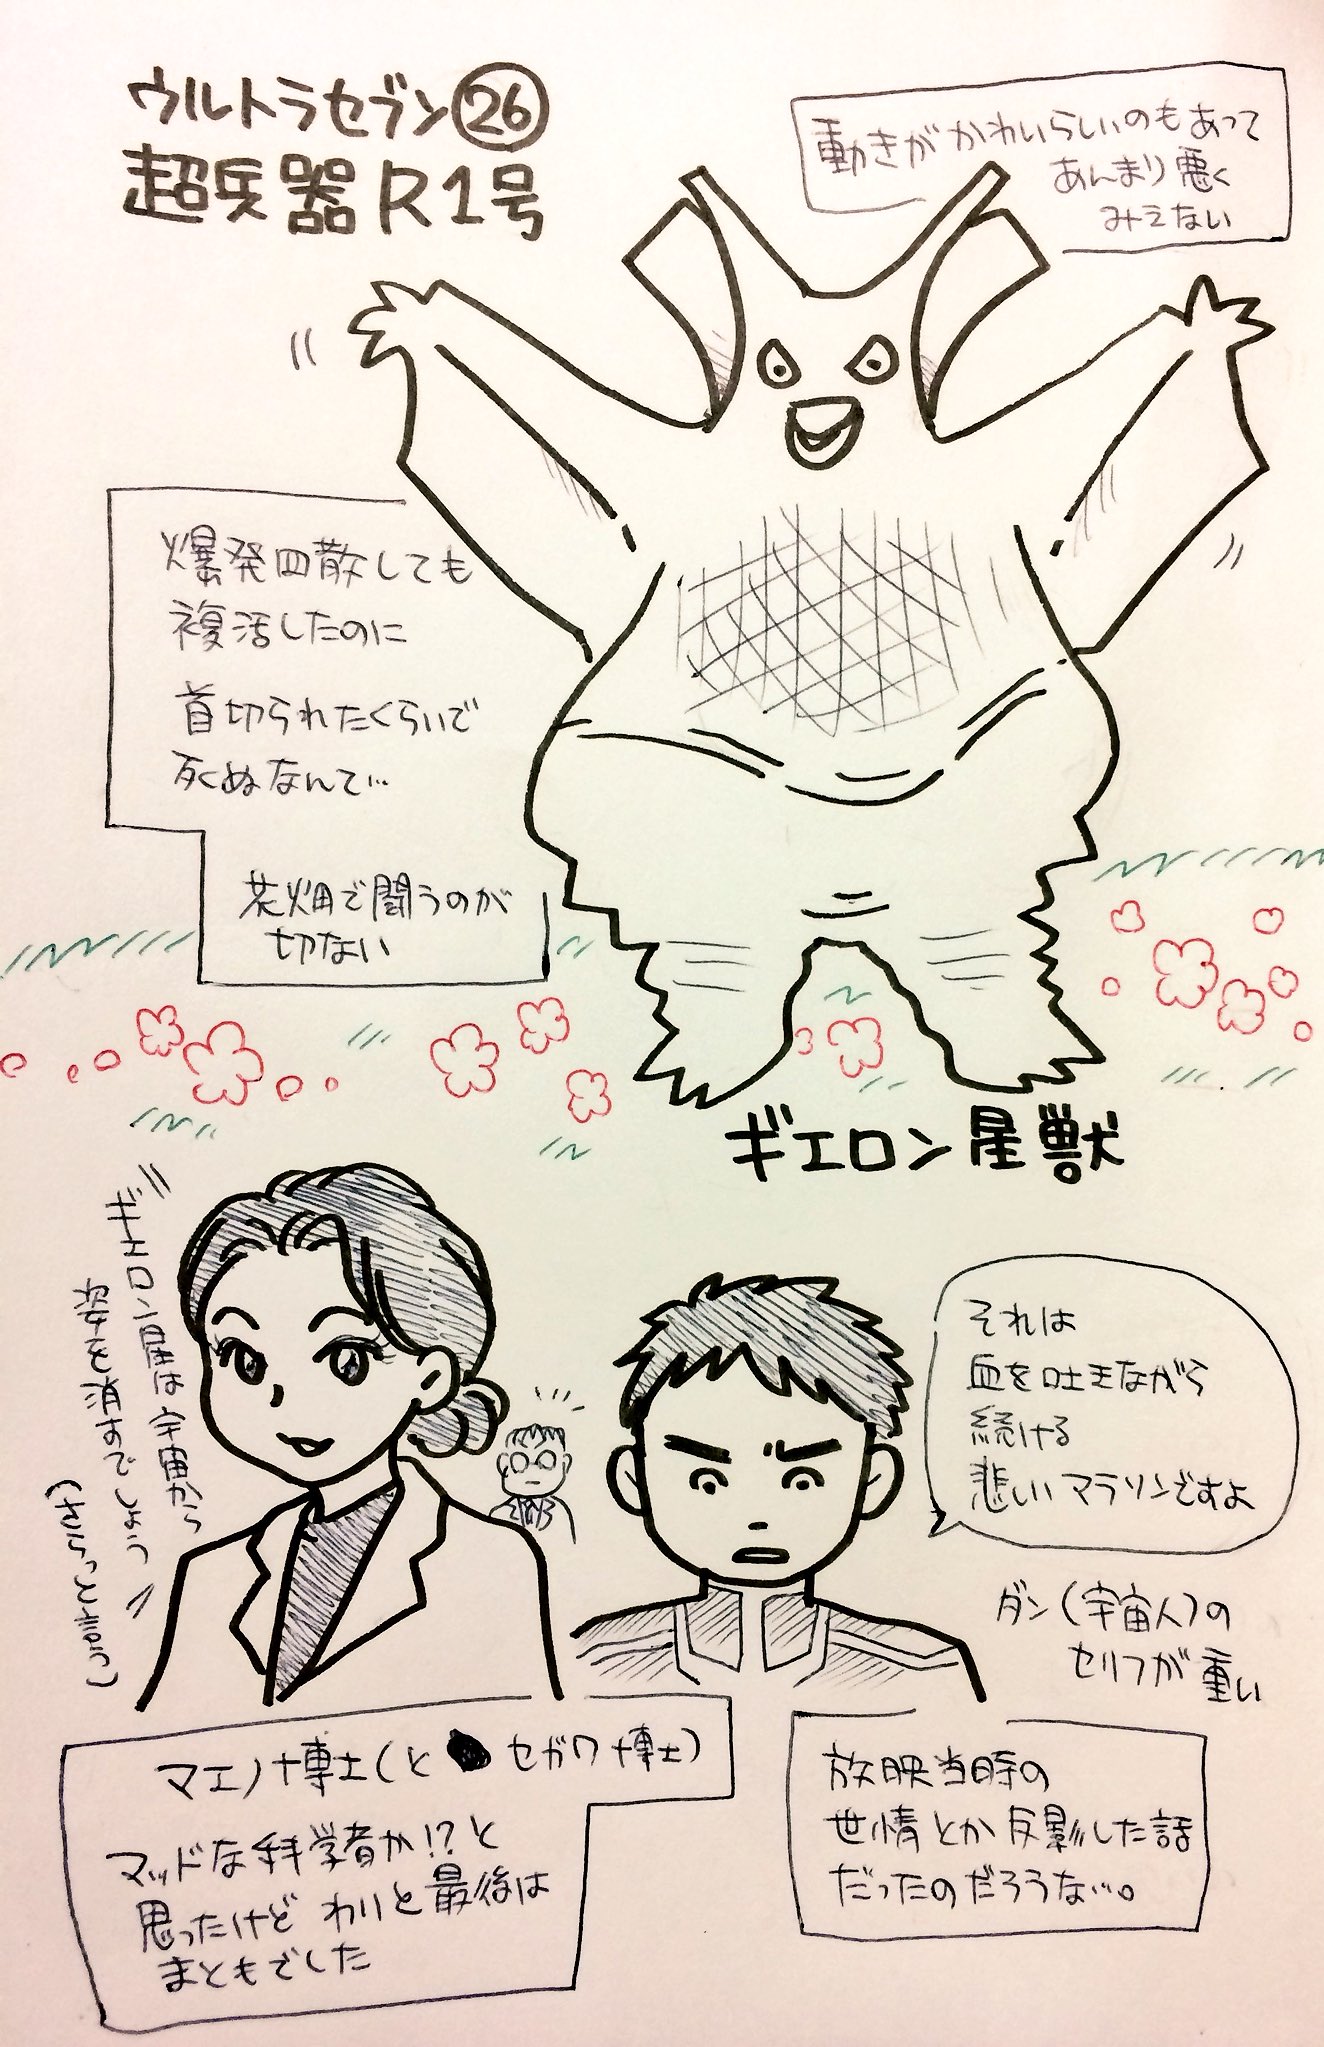 ウルトラセブン㉖
超兵器R1号
動きがかわいらしいのもあって
あんまり悪く
みえない
爆発四散しても
複活したのに
首切られたくらいで
死ぬなんて…
花畑で闘うのが
切ない
ギエロン星獣
ギエロン星は宇宙から
姿を消すでしょう
(さらっと言う)
それは
血を吐きながら
続ける
悲しいマラソンですよ
ダン(宇宙人)の
セリフが重い
マエノ博士(と セガワ博士)
マッドな科学者か!?と
思ったけど わりと最後は
まともでした
放映当時の
世情とか反影した話
だったのだろうな…。